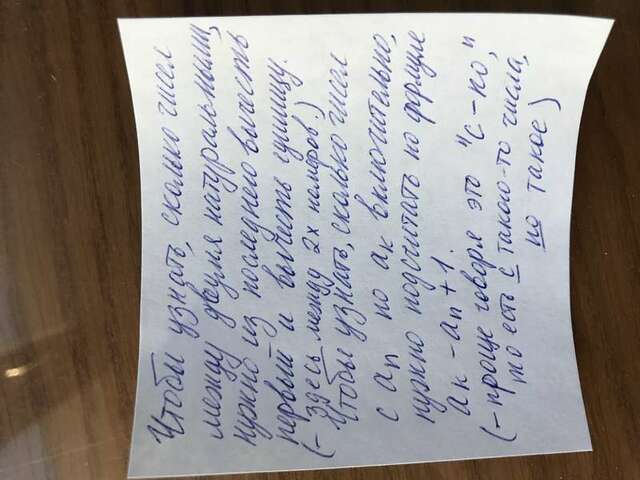 Чтобы узнать, сколько чисел
между двумя натуральными,
нужно из последнего вычесть
первый и вычесть единицу.
(- здесь между 2х номеров.)
Чтобы узнать, сколько чисел
с an по ак включительно,
нужно подсчитать по формуле
ак - an + 1.
(- проще говоря это "с - по",
то есть с такого-то числа,
по такое)